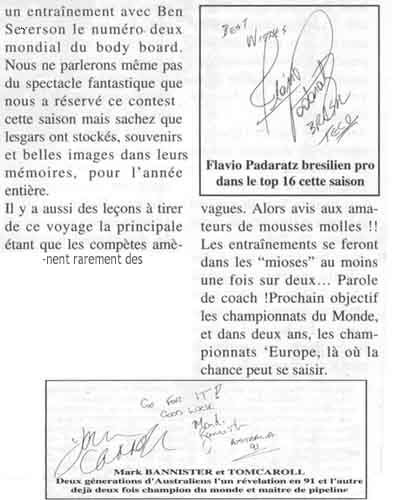 un entraînement avec Ben
Sererson le numéro deux
mondial du body board.
Nous ne parlerons même pas
du spectacle fantastique que
nous a réservé ce contest
cette saison mais sachez que
lesgars ont stockés, souvenirs
et belles images dans leurs
mémoires, pour l'année
entière.
Il y a aussi des leçons à tirer
de ce voyage la principale
étant que les compètes amè-
-nent rarement des
BEST
WISHES
Flavio
Padaratz
BRASIL
Flavio Padaratz bresilien pro
dans le top 16 cette saison
vagues. Alors avis aux ama-
teurs de mousses molles !!
Les entraînements se feront
dans les “mioses” au moins
une fois sur deux... Parole
de coach !Prochain objectif
les championnats du Monde,
et dans deux ans, les cham-
pionnats ‘Europe, là où la
chance peut se saisir.
GO FOR IT!
GOOD LUCK
Mark
Bannister
AUSTRALIA
91
Tom
CARROLL
Mark BANNISTER et TOMCAROLL
Deux générations d'Australiens l'un révelation en 91 et l'autre
dejà deux fois champion du monde et maitre de pipeline